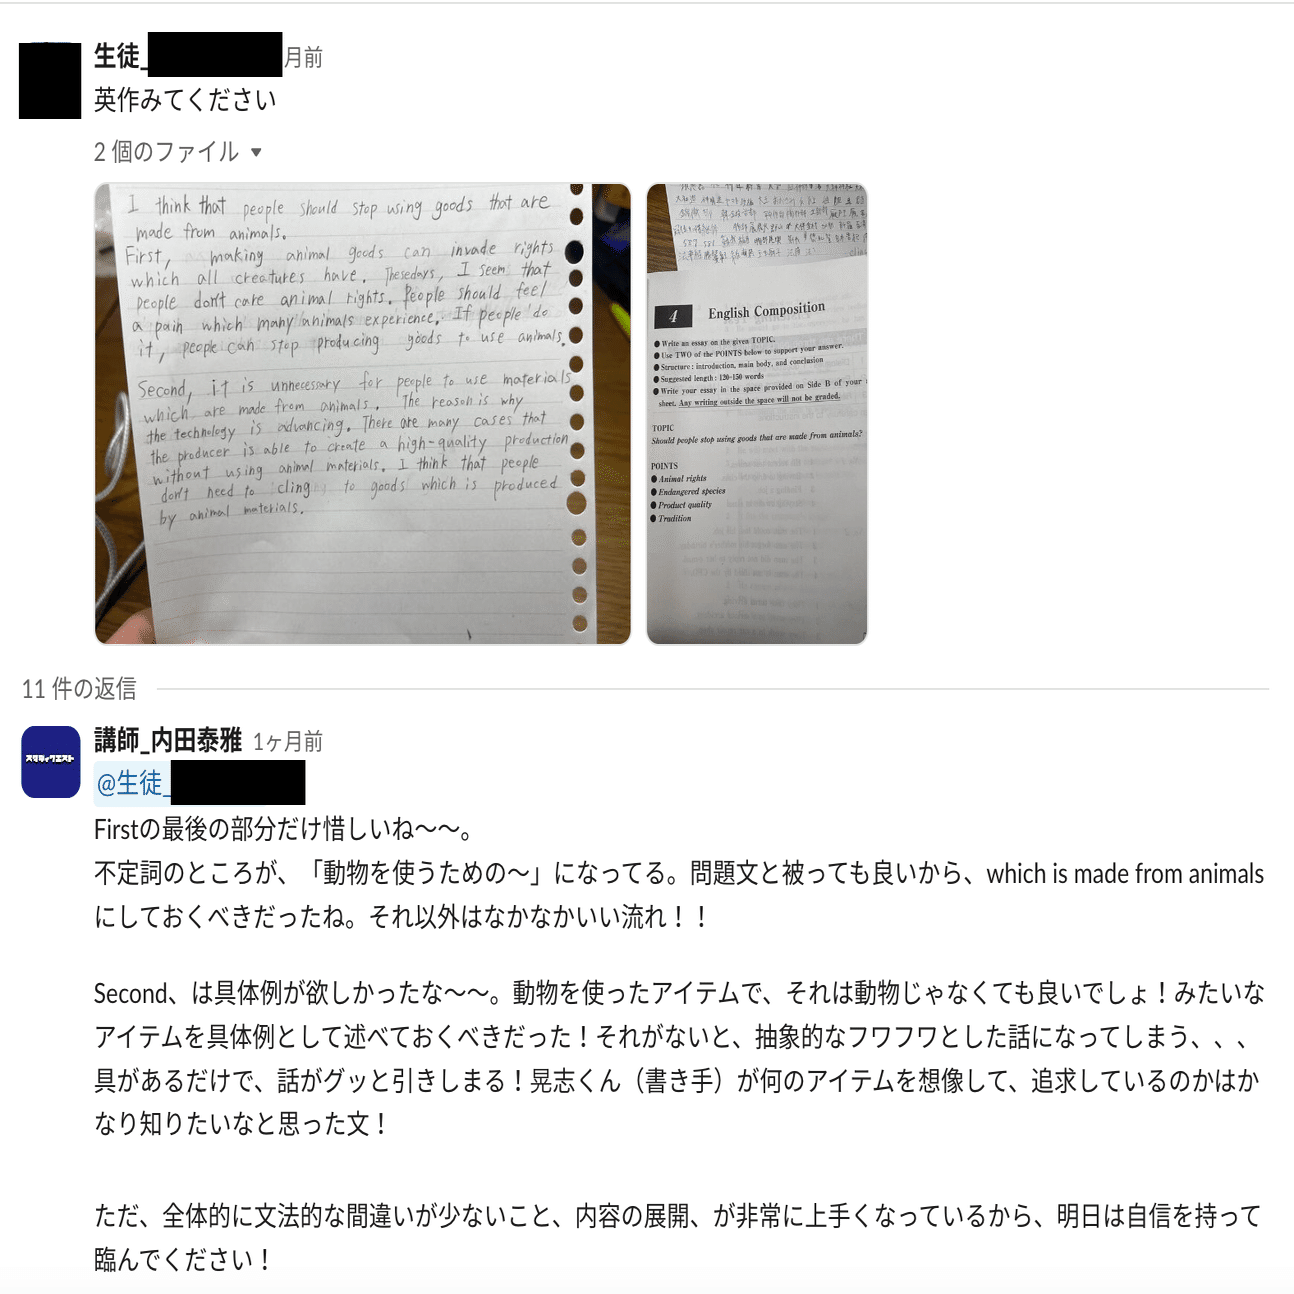 生徒_
月前
英作みてください
2 個のファイル ▼
I think that people should stop using goods that are
made from animals.
First, making animal goods can invade rights
which all creatures have. Thesedays, I seem that
people don't care animal rights. People should feel
a pain which many animals experience. If people do
it, people can stop producing goods to use animals.
Second, it is unnecessary for people to use materials
which are made from animals. The reason is why
the technology is advancing. There are many cases that
the producer is able to create a high-quality production
without using animal materials. I think that people
don't need to cling to goods which is produced
by animal materials.
4 English Composition
● Write an essay on the given TOPIC.
● Use TWO of the POINTS below to support your answer.
● Structure : introduction, main body, and conclusion
● Suggested length : 120-150 words
● Write your essay in the space provided on Side B of your
sheet. Any writing outside the space will not be graded.
TOPIC
Should people stop using goods that are made from animals?
POINTS
● Animal rights
● Endangered species
● Product quality
● Tradition
11 件の返信
スタディクエスト
講師_内田泰雅 1ヶ月前
@生徒_
Firstの最後の部分だけ惜しいね〜〜。
不定詞のところが、「動物を使うための〜」になってる。問題文と被っても良いから、which is made from animals
にしておくべきだったね。それ以外はなかなかいい流れ！！
Second、は具体例が欲しかったな〜〜。動物を使ったアイテムで、それは動物じゃなくても良いでしょ！みたいな
アイテムを具体例として述べておくべきだった！それがないと、抽象的なフワフワとした話になってしまう、、、
具があるだけで、話がグッと引きしまる！晃志くん（書き手）が何のアイテムを想像して、追求しているのかはか
なり知りたいなと思った文！
ただ、全体的に文法的な間違いが少ないこと、内容の展開、が非常に上手くなっているから、明日は自信を持って
臨んでください！